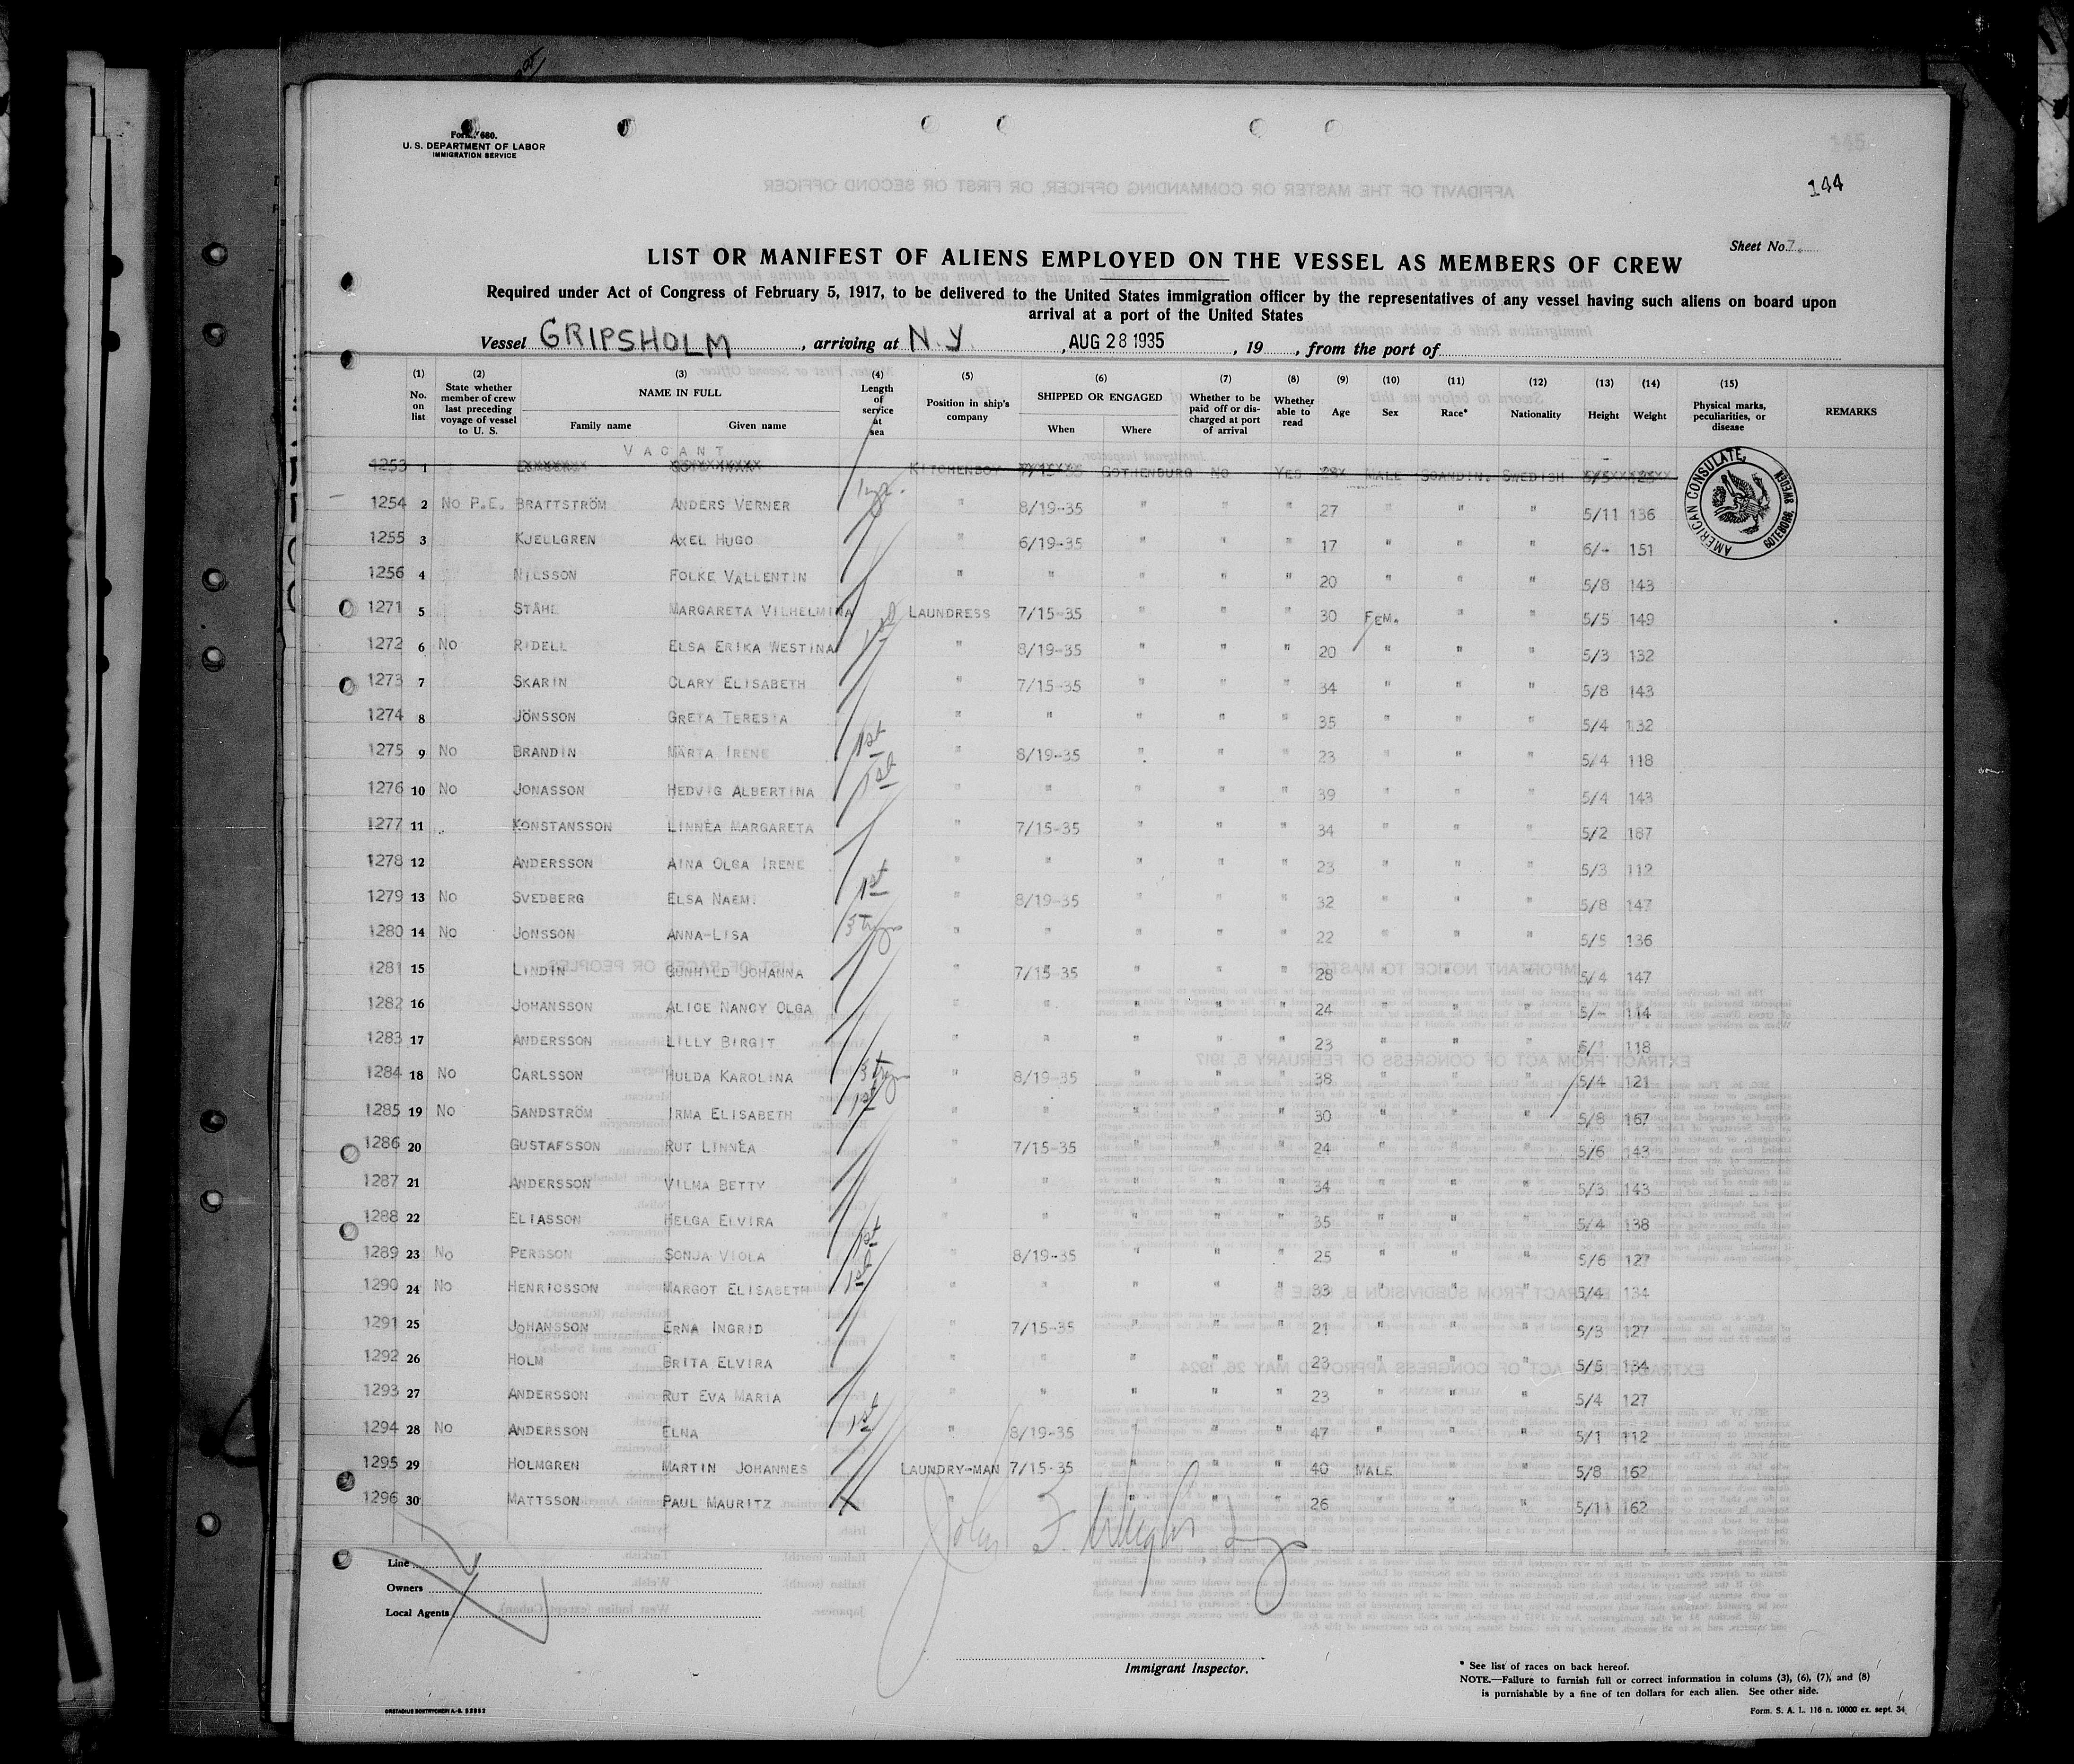 Form 680.
U. S. DEPARTMENT OF LABOR
IMMIGRATION SERVICE
144
Sheet No. 7.
LIST OR MANIFEST OF ALIENS EMPLOYED ON THE VESSEL AS MEMBERS OF CREW
Required under Act of Congress of February 5, 1917, to be delivered to the United States immigration officer by the representatives of any vessel having such aliens on board upon
arrival at a port of the United States
Vessel GRIPSHOLM, arriving at N.Y, AUG 28 1935, 19, from the port of
(1) No. on list (2) State whether member of crew last preceding voyage of vessel to U. S. (3) NAME IN FULL Family name Given name (4) Length of service at sea (5) Position in ship's company (6) SHIPPED OR ENGAGED When Where (7) Whether to be paid off or discharged at port of arrival (8) Whether able to read (9) Age (10) Sex (11) Race* (12) Nationality (13) Height (14) Weight (15) Physical marks, peculiarities, or disease REMARKS
VACANT
1253 1 KITCHENBOY 7/15-35 GOTHENBURG NO YES MALE SCANDIN. SWEDISH
AMERICAN CONSULATE, GOTEBORG, SWEDEN
1254 2 No P.E. BRATTSTRÖM ANDERS VERNER " 8/19-35 " " " 27 " " " 5/11 136
1255 3 KJELLGREN AXEL HUGO " 6/19-35 " " " 17 " " " 6/- 151
1256 4 NILSSON FOLKE VALLENTIN " " " " " 20 " " " 5/8 143
1271 5 STÅHL MARGARETA VILHELMINA LAUNDRESS 7/15-35 " " " 30 FEM. " " 5/5 149
1272 6 No RIDELL ELSA ERIKA WESTINA 1st " 8/19-35 " " " 20 " " " 5/3 132
1273 7 SKARIN CLARY ELISABETH " 7/15-35 " " " 34 " " " 5/8 143
1274 8 JÖNSSON GRETA TERESIA " " " " " 35 " " " 5/4 132
1275 9 No BRANDIN MÄRTA IRENE 1st " 8/19-35 " " " 23 " " " 5/4 118
1276 10 No JONASSON HEDVIG ALBERTINA 1st " " " " " 39 " " " 5/4 143
1277 11 KONSTANSSON LINNÉA MARGARETA " 7/15-35 " " " 34 " " " 5/2 187
1278 12 ANDERSSON AINA OLGA IRENE " " " " " 23 " " " 5/3 112
1279 13 No SVEDBERG ELSA NAEMI 1st " 8/19-35 " " " 32 " " " 5/8 147
1280 14 No JONSSON ANNA-LISA " " " " " 22 " " " 5/5 136
1281 15 LINDIN GUNHILD JOHANNA " 7/15-35 " " " 28 " " " 5/4 147
1282 16 JOHANSSON ALICE NANCY OLGA " " " " " 24 " " " 5/- 114
1283 17 ANDERSSON LILLY BIRGIT " " " " " 23 " " " 5/1 118
1284 18 No CARLSSON HULDA KAROLINA " 8/19-35 " " " 38 " " " 5/4 121
1285 19 No SANDSTRÖM IRMA ELISABETH 1st " " " " " 30 " " " 5/8 167
1286 20 GUSTAFSSON RUT LINNÉA " 7/15-35 " " " 24 " " " 5/6 143
1287 21 ANDERSSON VILMA BETTY " " " " " 34 " " " 5/3 143
1288 22 ELIASSON HELGA ELVIRA " " " " " 35 " " " 5/4 138
1289 23 No PERSSON SONJA VIOLA 1st " 8/19-35 " " " 25 " " " 5/6 127
1290 24 No HENRICSSON MARGOT ELISABETH 1st " " " " " 33 " " " 5/4 134
1291 25 JOHANSSON ERNA INGRID " 7/15-35 " " " 21 " " " 5/3 127
1292 26 HOLM BRITA ELVIRA " " " " " 23 " " " 5/5 134
1293 27 ANDERSSON RUT EVA MARIA " " " " " 23 " " " 5/4 127
1294 28 No ANDERSSON ELNA 1st " 8/19-35 " " " 47 " " " 5/1 112
1295 29 HOLMGREN MARTIN JOHANNES LAUNDRY-MAN 7/15-35 " " " 40 MALE " " 5/8 162
1296 30 MATTSSON PAUL MAURITZ " " " " 26 " " " 5/11 162
Line
Owners
Local Agents
Immigrant Inspector.
* See list of races on back hereof.
NOTE.—Failure to furnish full or correct information in colums (3), (6), (7), and (8)
is purnishable by a fine of ten dollars for each alien. See other side.
Form. S. A. L. 116 n. 10000 ex. sept. 34